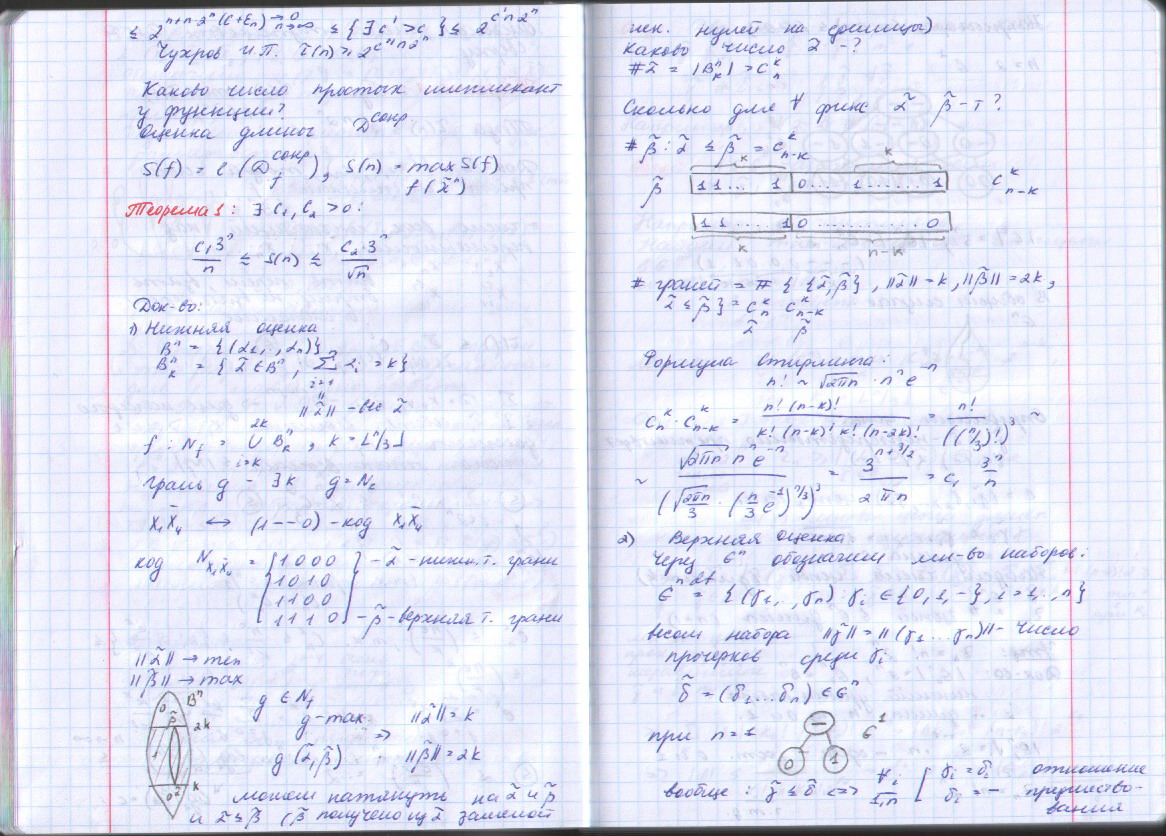 ≤ 2^{n+n·2^n(C+ε_n)} →0 n→∞ ≤ {∃ c' > c} ≤ 2^{c'n2^n}
Чухров И.П. τ(n) ≥ 2^{c''n2^n}
Каково число простых импликант
у функции?
Оценка длины D^{сокр}
S(f) = l(D_f^{сокр}), S(n) = max S(f)
f(x̃^n)
Теорема 1: ∃ c₁, c₂ > 0:
c₁3^n/n ≤ S(n) ≤ c₂·3^n/√n
Док-во:
1) Нижняя оценка
B^n = {(α₁,..,α_n)}
B_k^n = {α̃ ∈ B^n, ∑_{i=1}^n α_i = k}
||α̃|| – вес α̃
f : N_f = ∪_{i=k}^{2k} B_k^n, k = ⌊n/3⌋
грань g – ∃k g = N_k
x₁x̄₄ ↔ (1--0) - код x₁x̄₄
код N_{x₁x̄₄} = {1000 } – α̃ - нижн. т. грани
1010
1100
1110 – β̃ - верхняя т. грани
||α̃|| → min
||β̃|| → max
B^n
0
β̃ 2k
1
α̃ k
0
g ∈ N_f
g - max ⇒ ||α̃|| = k
g (α̃, β̃) ||β̃|| = 2k
можем натянуть на α̃ и β̃
и α̃ ≤ β̃ (β̃ получено из α̃ заменой
нек. нулей на единицы)
Каково число α̃ -?
# α̃ = |B_k^n| = C_n^k
Сколько для ∀ фикс α̃ β̃ - т?
# β̃ : α̃ ≤ β̃ = C_{n-k}^k
k k
β̃ 11... 1 | 0... 1...... 1 C_{n-k}^k
11.....1 | 0 ........... 0
k n-k
# граней = # {{α̃, β̃}, ||α̃|| = k, ||β̃|| = 2k,
α̃ ≤ β̃} = C_n^k C_{n-k}^k
α̃ β̃
Формула Стирлинга:
n! ~ √(2πn) · n^n e^{-n}
C_n^k · C_{n-k}^k = n!(n-k)! / k!(n-k)! k!(n-2k)! = n! / ((n/3)!)^3 ~
~ √(2πn) n^n e^{-n} / (√(2πn/3) · (n/3 e^{-1})^{n/3})^3 = 3^{n+3/2} / 2πn = c₁ 3^n/n
2) Верхняя оценка
Через Є^n обозначим мн-во наборов:
Є^n df= {(γ₁,..,γ_n) γ_i ∈ {0,1,-}, i=1,..,n}
весом набора ||γ̃|| = ||(γ₁...γ_n)|| - число
прочерков среди γ_i
δ̃ = (δ₁...δ_n) ∈ Є^n
при n=1 – Є^1
0 1
вообще: γ̃ ≤ δ̃ <=> ∀ i 1,n [ γ_i = δ_i отношение
δ_i = – предшество-
вания